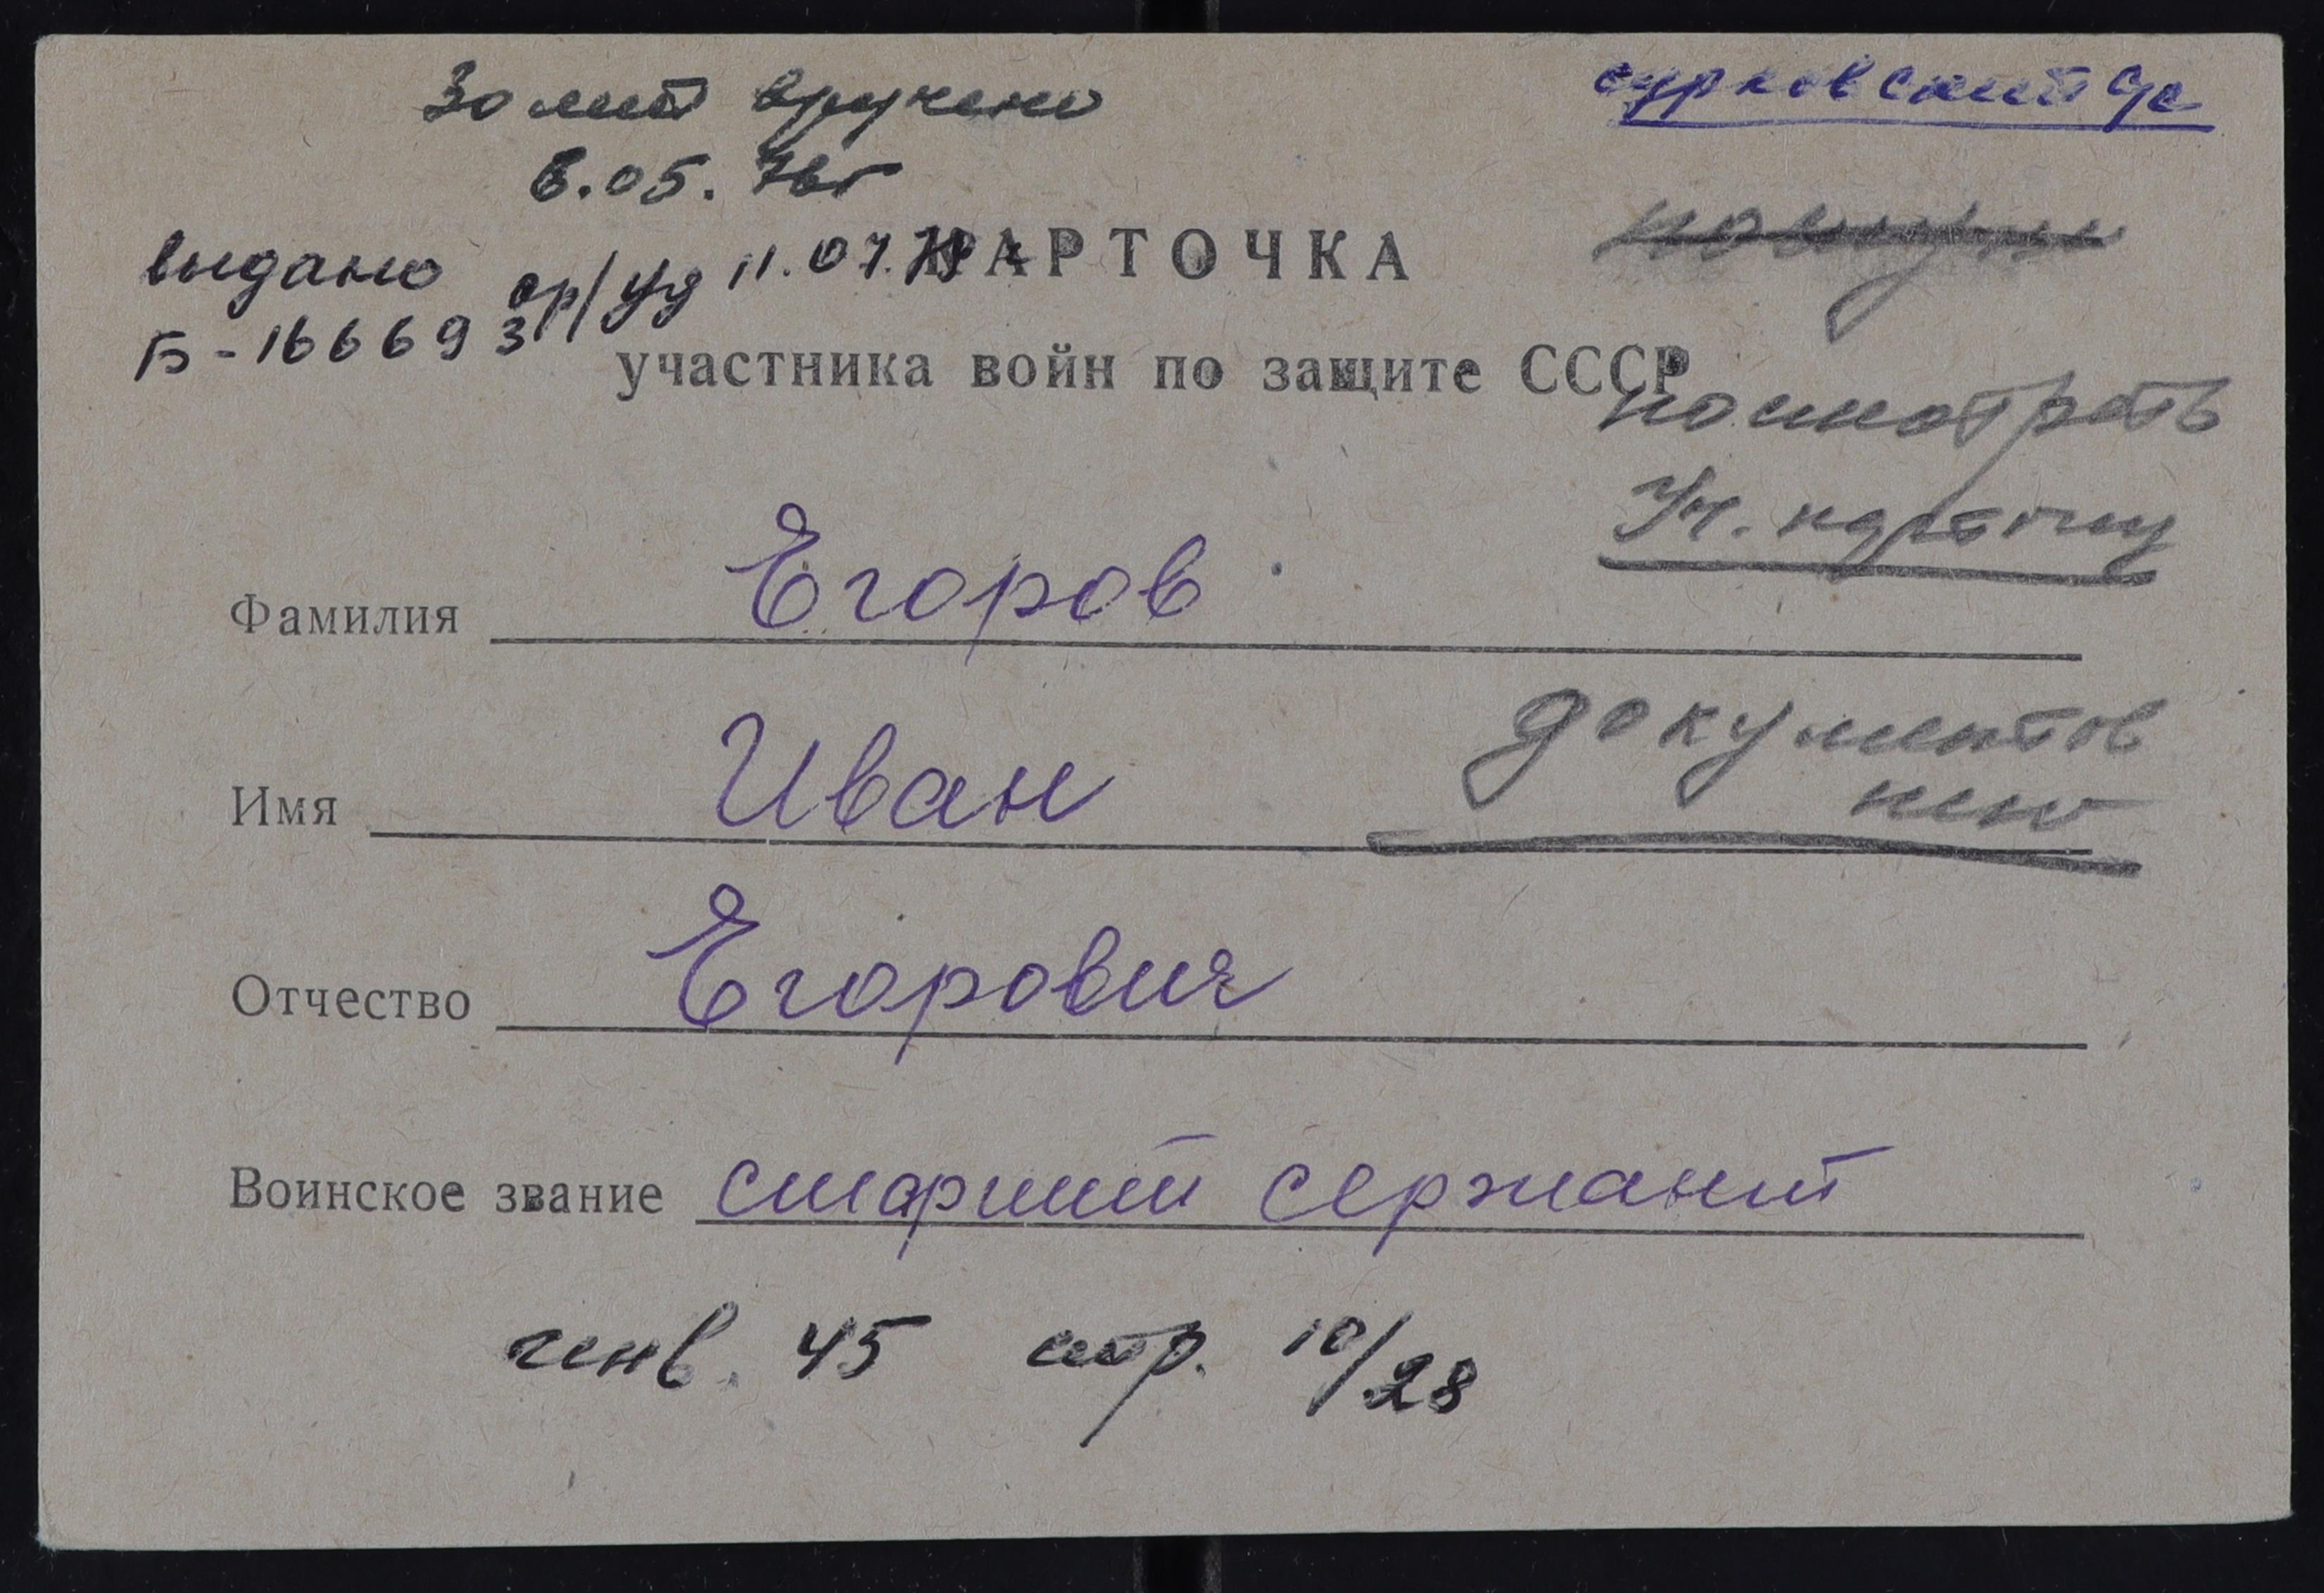 30 лет вручено
6.05.76г
сурковский с/с
выдано ор/уд 11.07.
Б-166693
КАРТОЧКА
участника войн по защите СССР
посмотреть
Уч. карточку
Фамилия Егоров
документов
нет
Имя Иван
Отчество Егорович
Воинское звание старший сержант
45 стр. 10/28